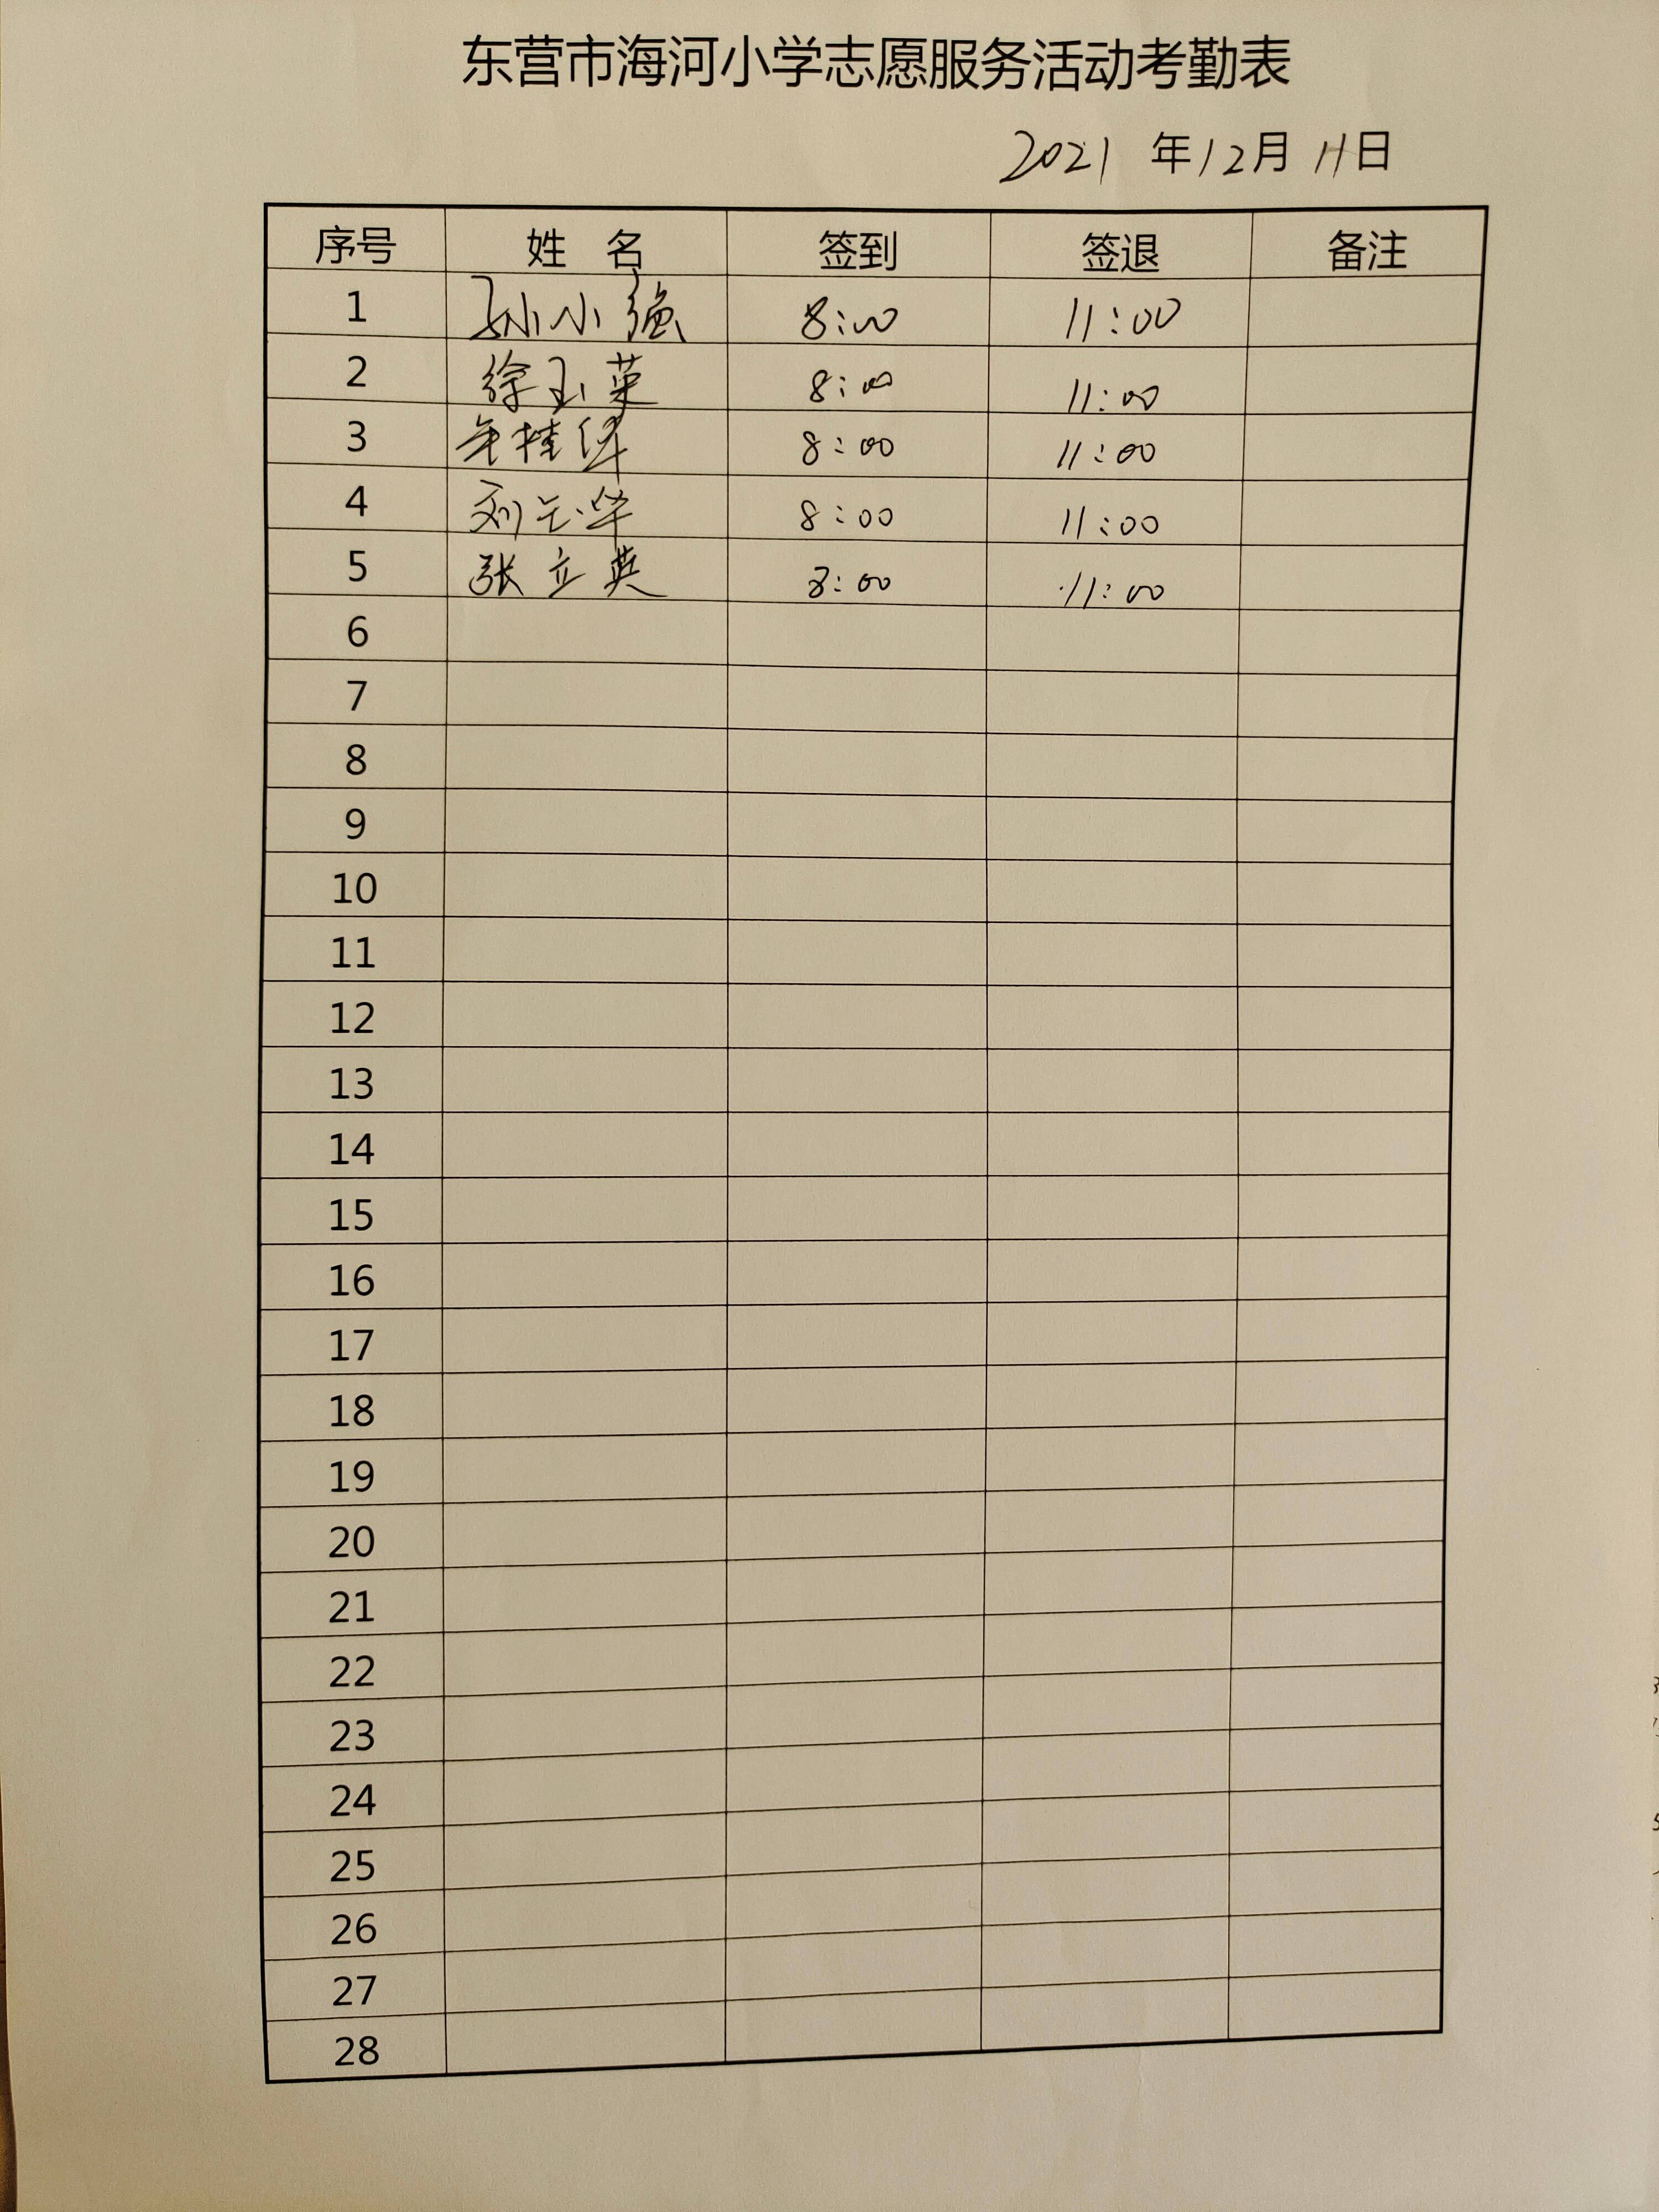 东营市海河小学志愿服务活动考勤表
2021 年 12月 11日
序号 姓 名 签到 签退 备注
1 孙小强 8:00 11:00
2 徐玉英 8:00 11:00
3 桂 8:00 11:00
4 刘 华 8:00 11:00
5 张立英 8:00 11:00
6
7
8
9
10
11
12
13
14
15
16
17
18
19
20
21
22
23
24
25
26
27
28